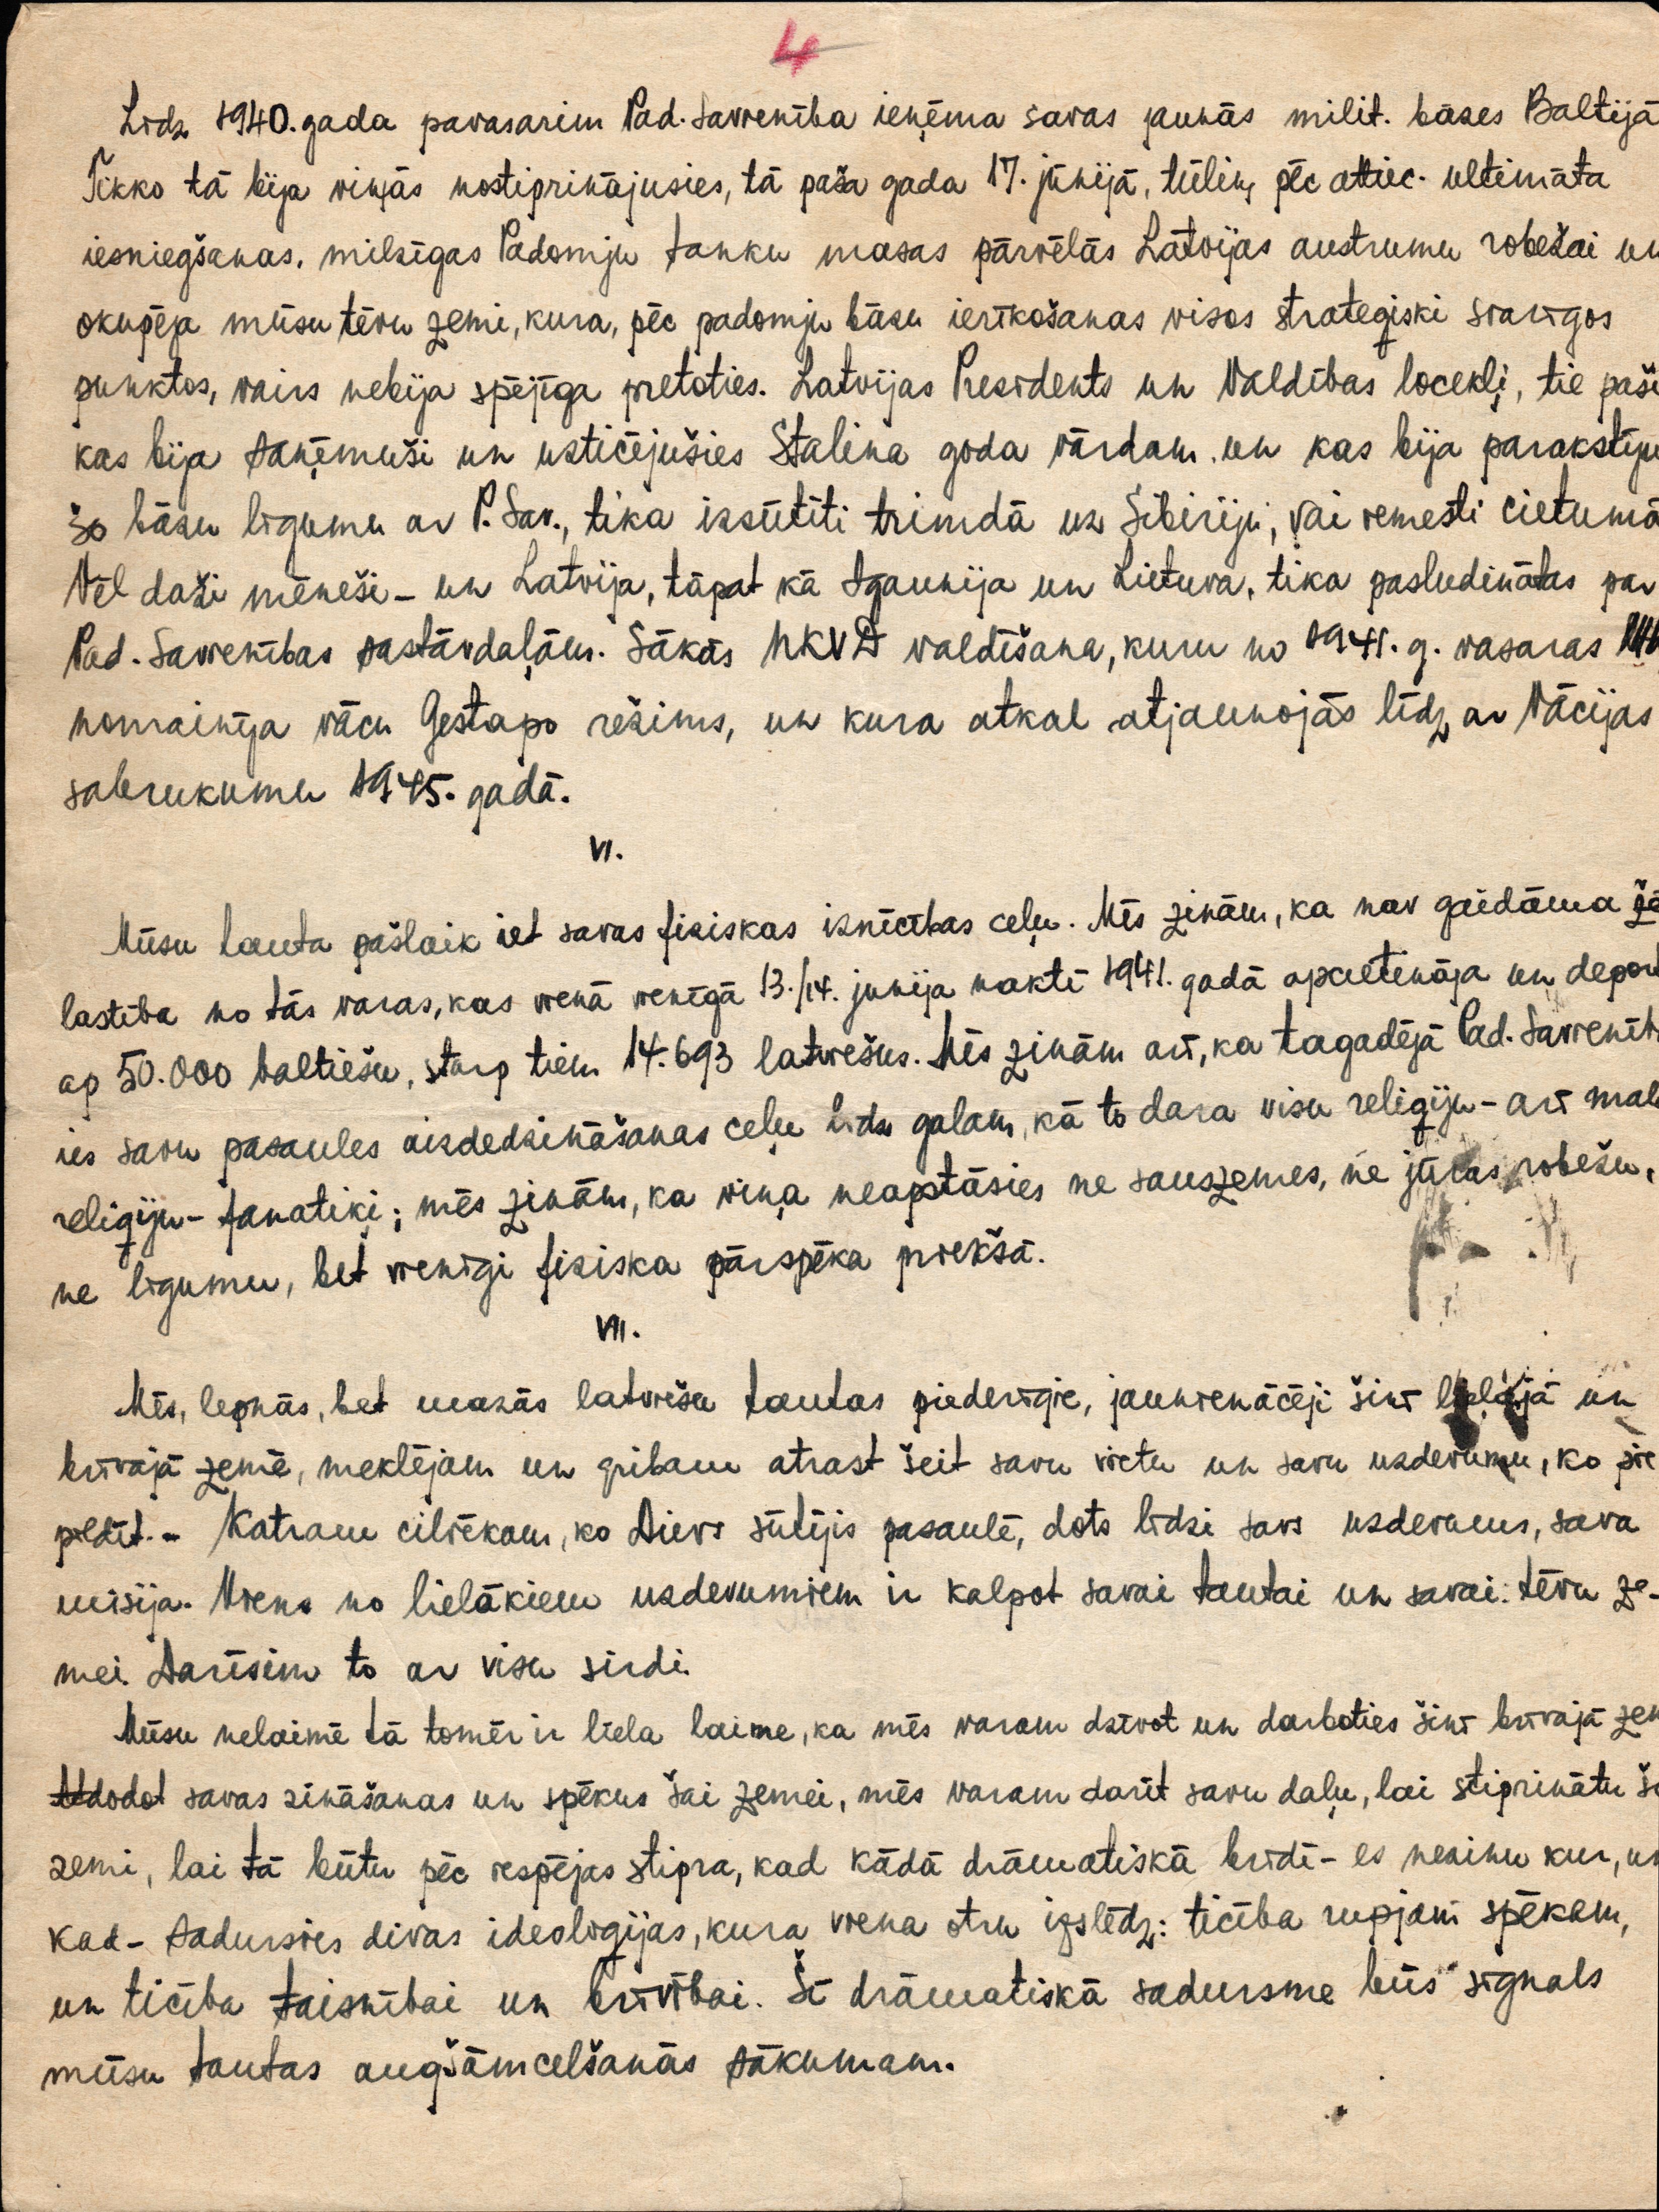 4
Līdz 1940. gada pavasarim Pad. Savienība ieņēma savas jaunās milit. bāzes Baltijā
Tikko tā bija viņās nostiprinājusies, tā paša gada 17. jūnijā, tūliņ pēc attiec. ultimāta
iesniegšanas, milzīgas Padomju tanku masas pārvēlās Latvijas austrumu robežai un
okupēja mūsu tēvu zemi, kura, pēc padomju bāzu ierīkošanas visos strateģiski svarīgos
punktos, vairs nebija spējīga pretoties. Latvijas Presidents un Valdības locekļi, tie paši
kas bija saņēmuši un uzticējušies Staļina goda vārdam un kas bija parakstīju
šo bāzu līgumu ar P. Sav., tika izsūtīti trimdā uz Sibiriju, vai iemesti cietumā
Vēl daži mēneši – un Latvija, tāpat kā Igaunija un Lietuva, tika pasludinātas par
Pad. Savienības sastāvdaļām. Sākās NKVD valdīšana, kuru no 1941. g. vasaras
nomainīja vācu Gestapo režims, un kura atkal atjaunojās līdz ar Vācijas
sabrukumu 1945. gadā.
VI.
Mūsu tauta pašlaik iet savas fiziskas iznīcības ceļu. Mēs zinām, ka nav gaidāma žē
lastība no tās varas, kas vienā vienīgā 13./14. jūnija naktī 1941. gadā apcietināja un deport
ap 50.000 baltiešu, starp tiem 14.693 latviešus. Mēs zinām arī, ka tagadējā Pad. Savienīb
ies savu pasaules aizdedzināšanas ceļu līdz galam, kā to dara visu reliģiju – arī mal
reliģiju – fanatiķi; mēs zinām, ka viņa neapstāsies ne sauszemes, ne jūras robežu,
ne līgumu, bet vienīgi fiziska pārspēka priekšā.
VII.
Mēs, lepnās, bet mazās latviešu tautas piederīgie, jaunienācēji šinī lielajā un
brīvajā zemē, meklējam un gribam atrast šeit savu vietu un savu uzdevumu, ko pie
pildīt. – Katram cilvēkam, ko Dievs sūtījis pasaulē, dots līdzi savs uzdevums, sava
misija. Viens no lielākiem uzdevumiem ir kalpot savai tautai un savai tēvu ze-
mei. Darīsim to ar visu sirdi.
Mūsu nelaimē tā tomēr ir liela laime, ka mēs varam dzīvot un darboties šinī brīvajā zem
dodot savas zināšanas un spēkus šai zemei, mēs varam darīt savu daļu, lai stiprinātu šo
zemi, lai tā būtu pēc iespējas stipra, kad kādā drāmatiskā brīdī – es nezinu kur, un
kad – sadursies divas ideoloģijas, kura viena otru izslēdz: ticība rupjam spēkam,
un ticība taisnībai un brīvībai. Šī drāmatiskā sadursme būs signals
mūsu tautas augšāmcelšanās sākumam.